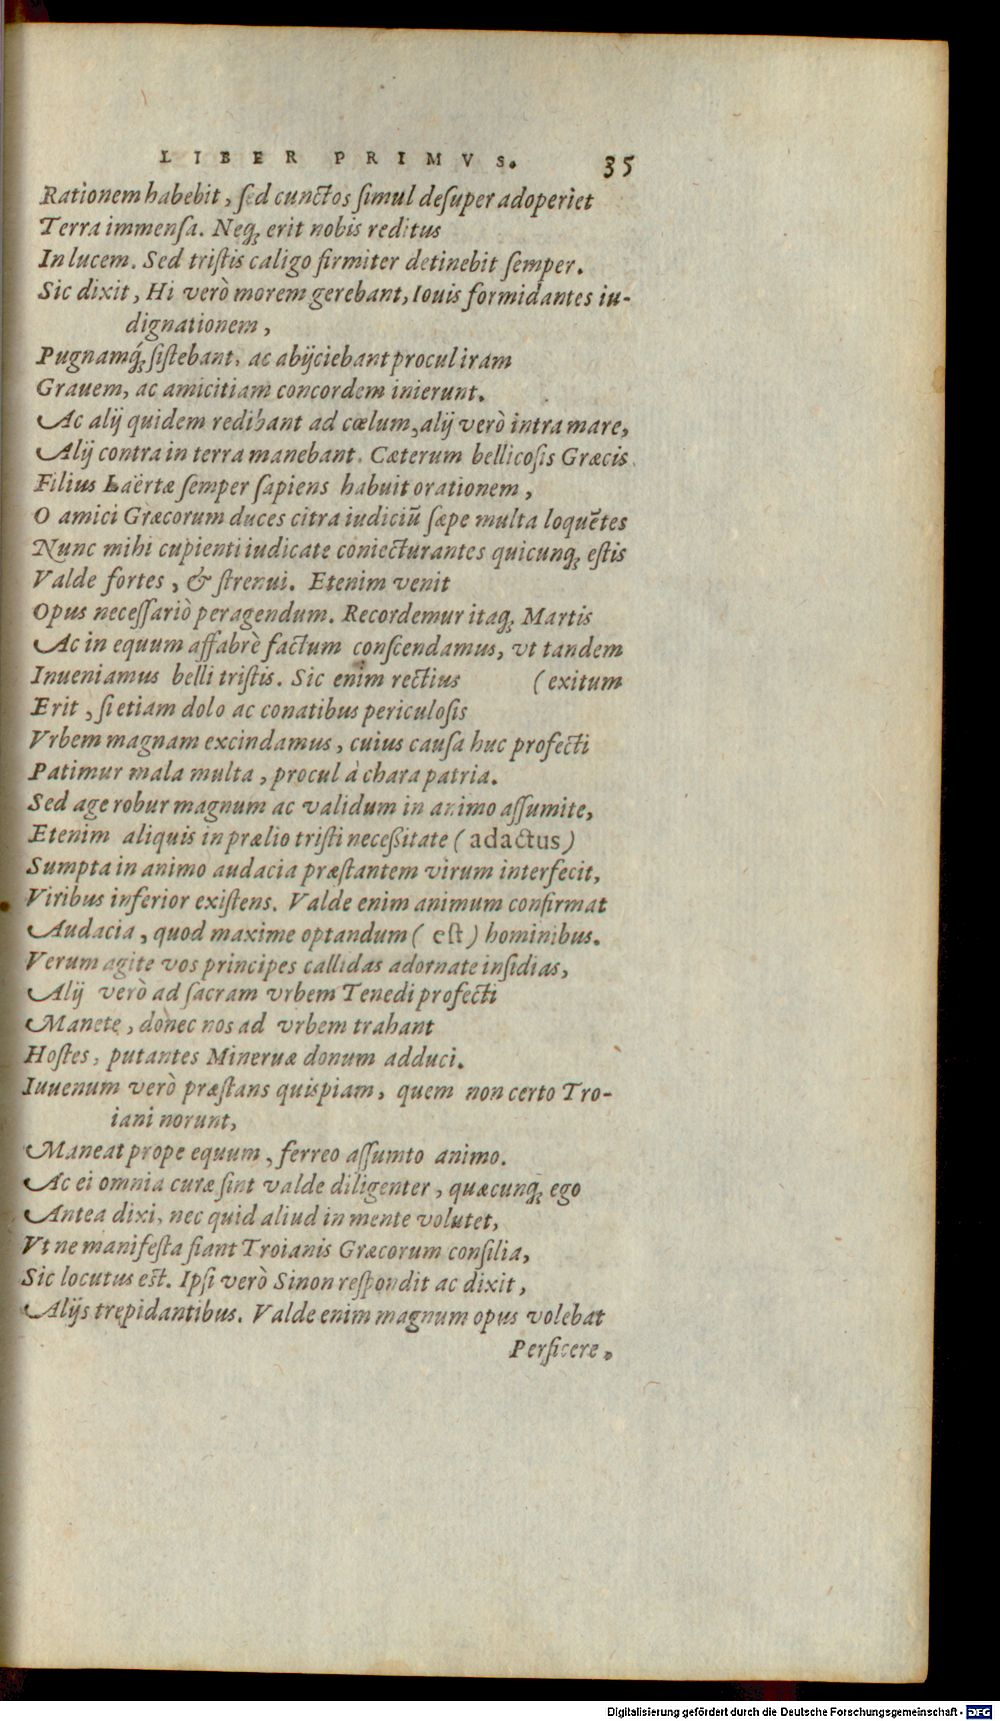 LIBER PRIMVS. 35
Rationem habebit, sed cunctos simul desuper adoperiet
Terra immensa. Neq; erit nobis reditus
In lucem. Sed tristis caligo firmiter detinebit semper.
Sic dixit, Hi verò morem gerebant, Iouis formidantes iu-
dignationem,
Pugnamq́; sistebant. ac abijciebant procul iram
Grauem, ac amicitiam concordem inierunt.
Ac alij quidem redibant ad cœlum, alij verò intra mare,
Alij contra in terra manebant. Cæterum bellicosis Græcis
Filius Laërtæ semper sapiens habuit orationem,
O amici Græcorum duces citra iudiciū sæpe multa loquētes
Nunc mihi cupienti iudicate coniecturantes quicunq; estis
Valde fortes, & strenui. Etenim venit
Opus necessariò peragendum. Recordemur itaq; Martis
Ac in equum affabrè factum conscendamus, vt tandem
Inueniamus belli tristis. Sic enim rectius (exitum
Erit, si etiam dolo ac conatibus periculosis
Vrbem magnam excindamus, cuius causa huc profecti
Patimur mala multa, procul à chara patria.
Sed age robur magnum ac validum in animo assumite,
Etenim aliquis in prælio tristi necessitate (adactus)
Sumpta in animo audacia præstantem virum interfecit,
Viribus inferior existens. Valde enim animum confirmat
Audacia, quod maxime optandum (est) hominibus.
Verum agite vos principes callidas adornate insidias,
Alij verò ad sacram vrbem Tenedi profecti
Manete, donec nos ad vrbem trahant
Hostes, putantes Mineruæ donum adduci.
Iuuenum verò præstans quispiam, quem non certo Tro-
iani norunt,
Maneat prope equum, ferreo assumto animo.
Ac ei omnia curæ sint valde diligenter, quæcunq; ego
Antea dixi, nec quid aliud in mente volutet,
Vt ne manifesta fiant Troianis Græcorum consilia,
Sic locutus est. Ipsi verò Sinon respondit ac dixit,
Alijs trepidantibus. Valde enim magnum opus volebat
Perficere.
Digitalisierung gefördert durch die Deutsche Forschungsgemeinschaft - DFG